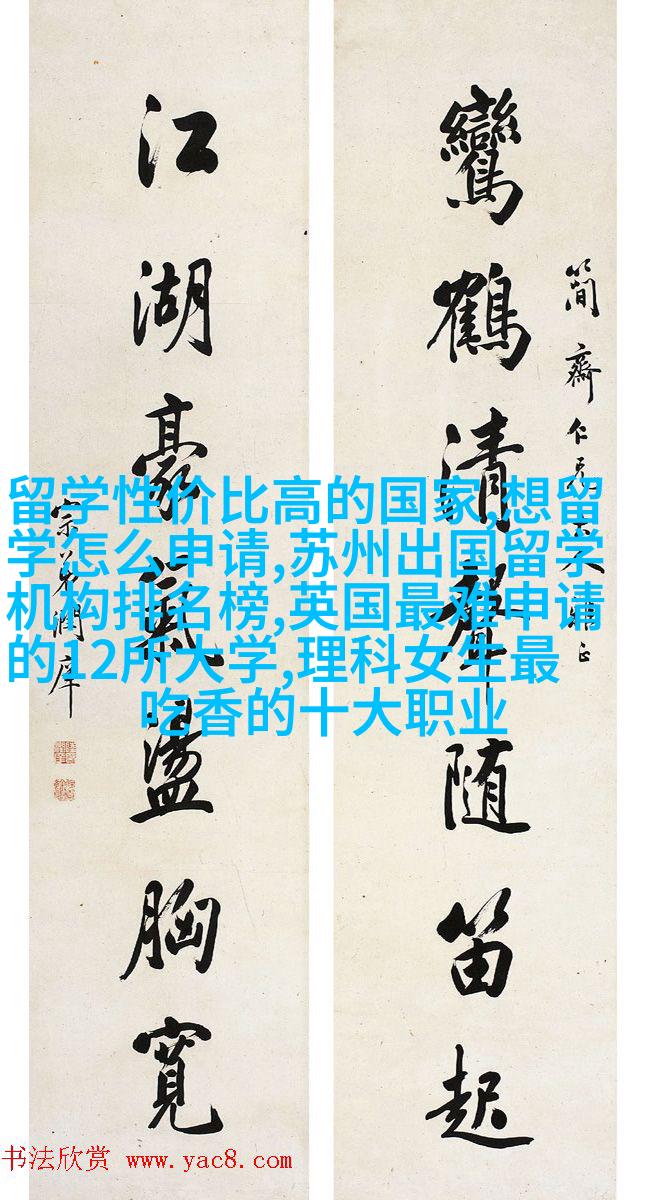 簡齋仁兄大人雅正
鸞鶴清聲随笛起
江湖豪氣盪胸寬
宗弟潤庠
留学性价比高的国家,想留
学怎么申请,苏州出国留学
机构排名榜,英国最难申请
的12所大学,理科女生最
吃香的十大职业
书法欣赏 www.yac8.com